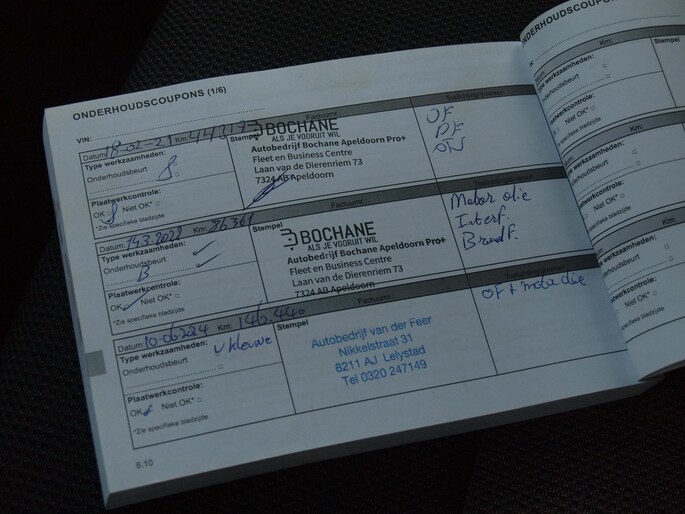 ONDERHOUDSCOUPONS (1/6)
VIN:
Datum: 18-02-21 Km:
Factuurnr.
Stempel
BOCHANE
ALS JE VOORUIT WIL
Autobedrijf Bochane Apeldoorn Pro+
Fleet en Business Centre
Laan van de Dierenriem 73
7324 AB Apeldoorn
Type werkzaamheden:
Onderhoudsbeurt
Plaatwerkcontrole:
OK Niet OK*
*Zie specifieke bladzijde
OF
Datum: 14.3.2022 Km: 86361
Factuurnr.
Stempel
BOCHANE
ALS JE VOORUIT WIL
Autobedrijf Bochane Apeldoorn Pro+
Fleet en Business Centre
Laan van de Dierenriem 73
7324 AB Apeldoorn
Type werkzaamheden:
Onderhoudsbeurt
B
Plaatwerkcontrole:
OK Niet OK*
*Zie specifieke bladzijde
Motor olie
Interf.
Brandf.
Datum: 10-06-2024 Km: 146.440
Factuurnr.
Stempel
Type werkzaamheden:
Onderhoudsbeurt
Plaatwerkcontrole:
OK Niet OK*
*Zie specifieke bladzijde
Autobedrijf van der Feer
Nikkelstraat 31
8211 AJ Lelystad
Tel 0320 247149
OF + motor olie
6.10
ONDERHOUDSCOUPONS
VIN:
Km:
Stempel
Niet OK*